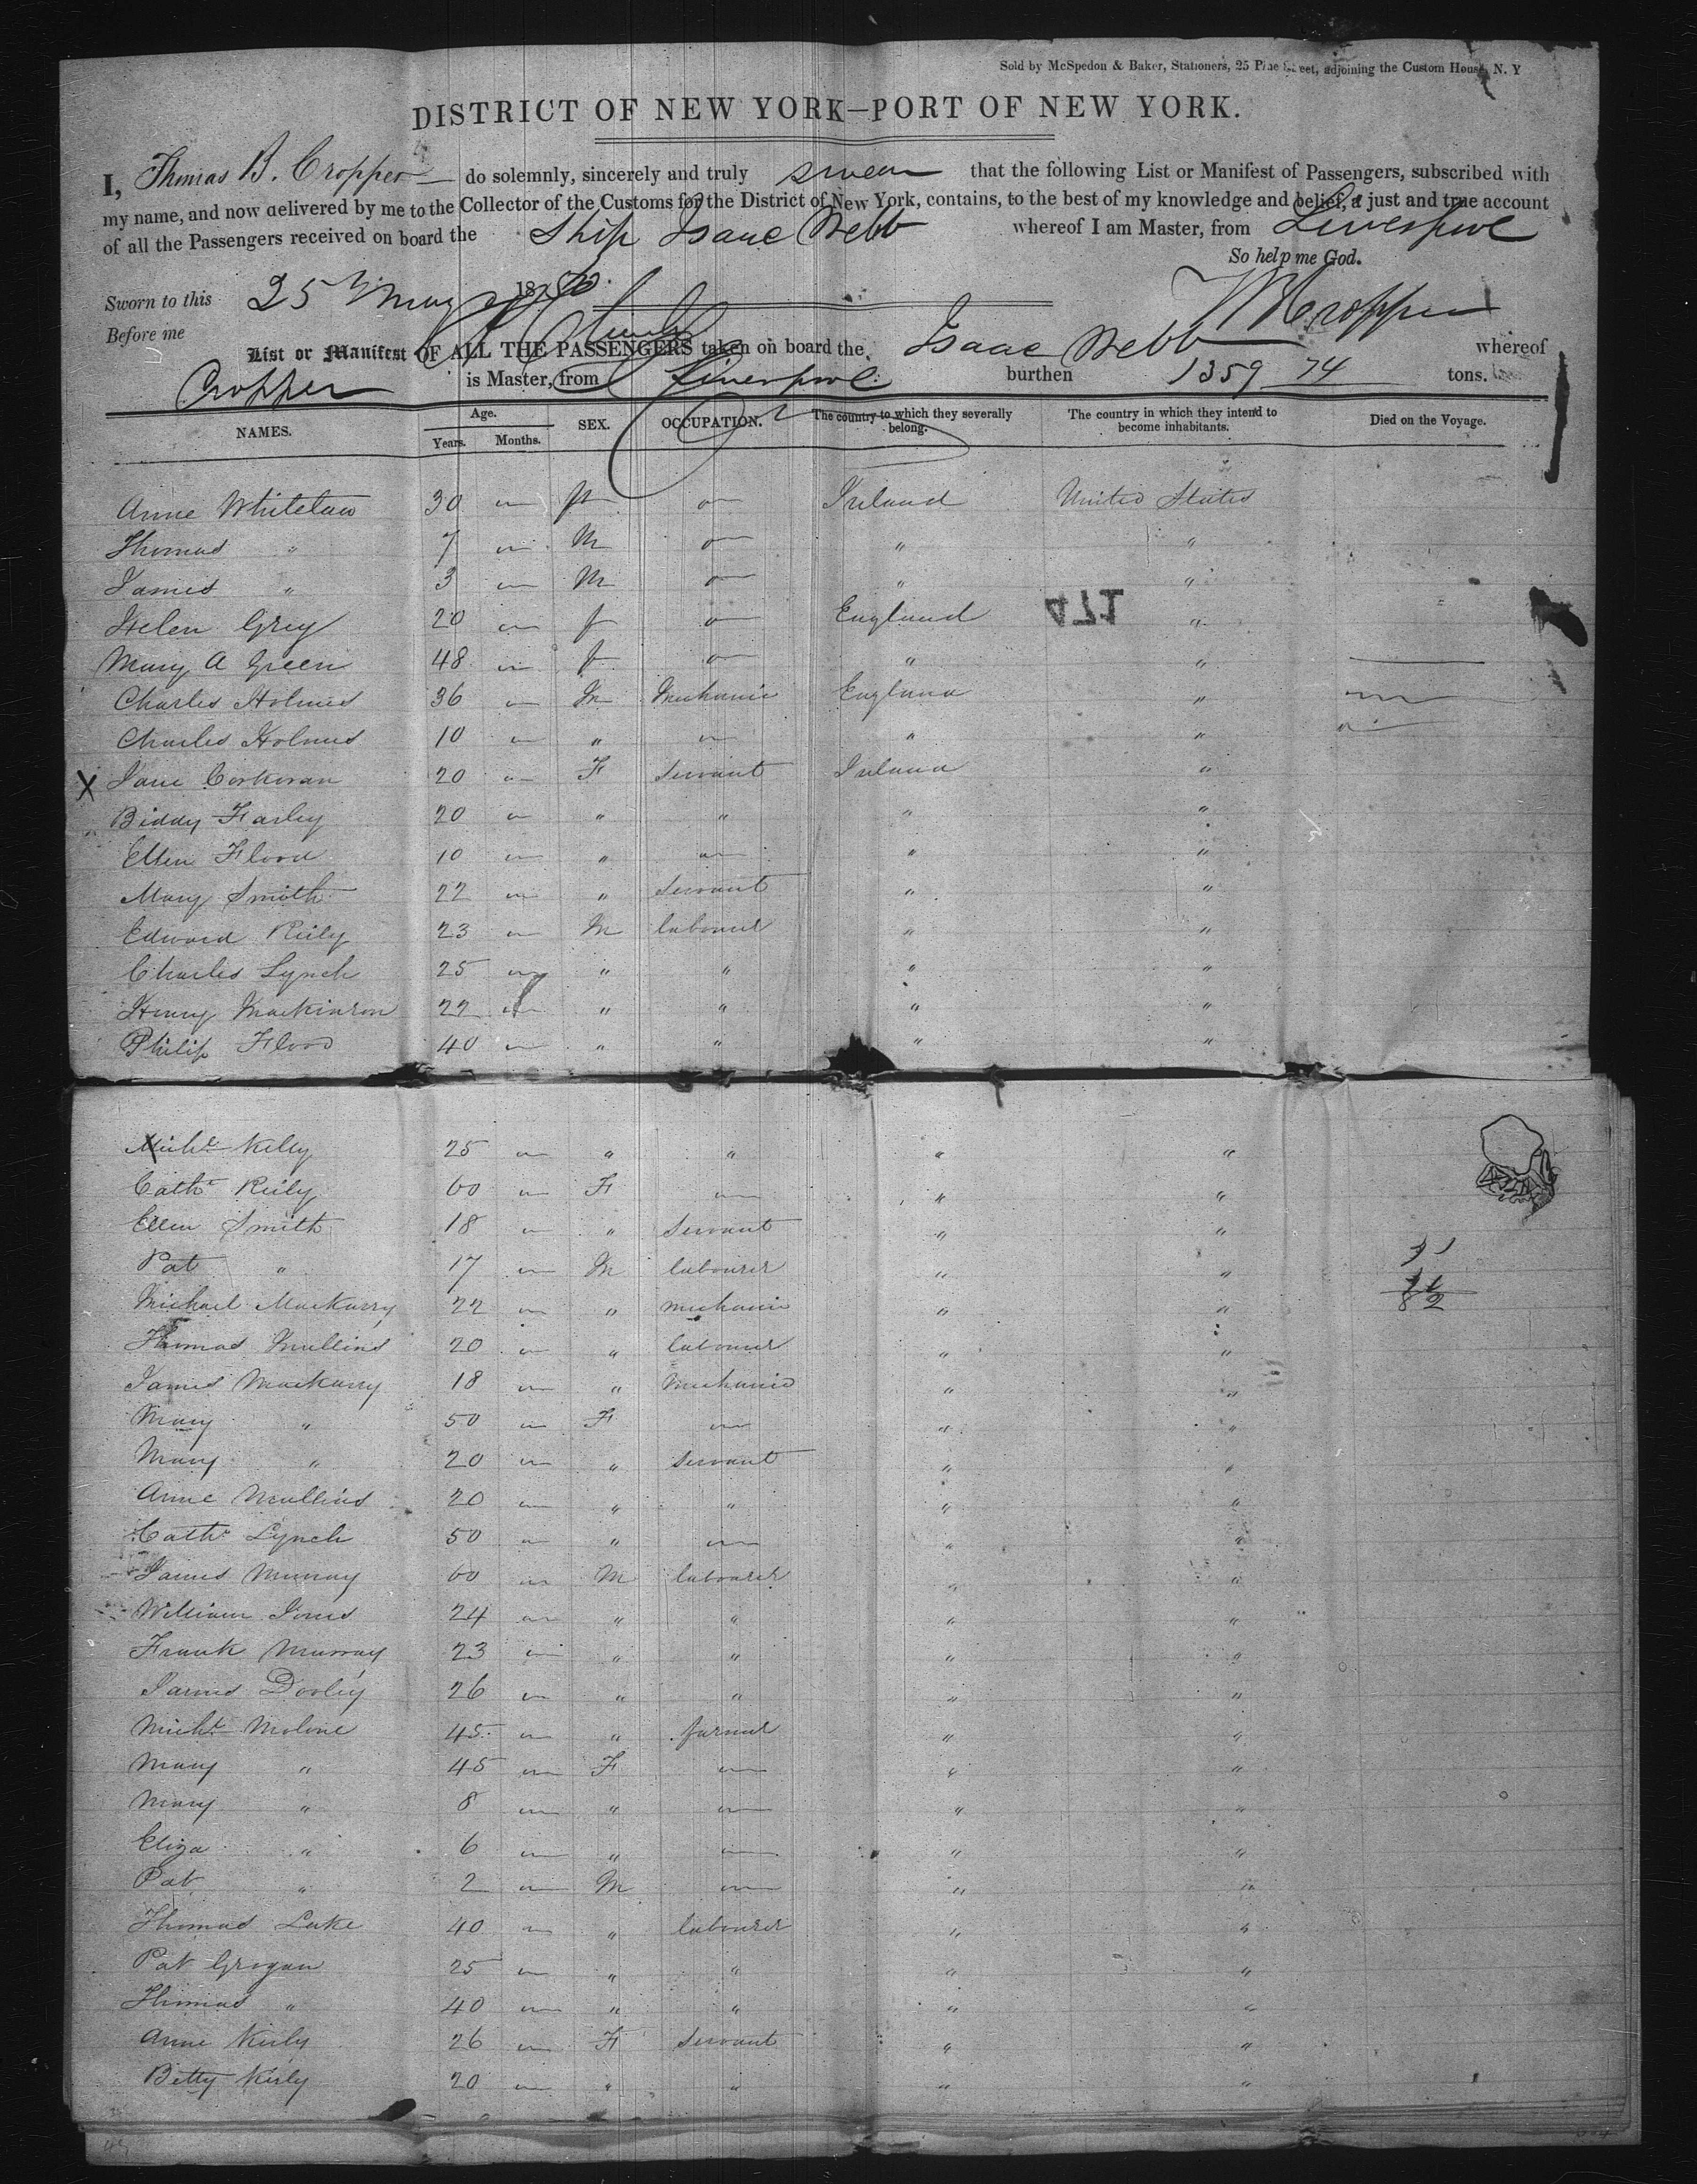 Sold by McSpedon & Baker, Stationers, 25 Pine Street, adjoining the Custom House, N. Y
DISTRICT OF NEW YORK—PORT OF NEW YORK.
I, Thomas B. Cropper do solemnly, sincerely and truly swear that the following List or Manifest of Passengers, subscribed with
my name, and now delivered by me to the Collector of the Customs for the District of New York, contains, to the best of my knowledge and belief, a just and true account
of all the Passengers received on board the Ship Isaac Webb whereof I am Master, from Liverpool
So help me God.
Sworn to this 25 May 1850
Before me
List or Manifest OF ALL THE PASSENGERS taken on board the Isaac Webb whereof
Cropper is Master, from Liverpool burthen 1359 74 tons.
NAMES. Age. Years. Months. SEX. OCCUPATION. The country to which they severally belong. The country in which they intend to become inhabitants. Died on the Voyage.
Anne Whitelaw 30 f Ireland United States
Thomas " 7 M " "
James " 3 M " "
Helen Grey 20 f England "
471
Mary A Green 48 f " "
Charles Holmes 36 M Mechanic England "
Charles Holmes 10 " " "
X Jane Corkoran 20 F Servant Ireland "
Biddy Farley 20 " " " "
Ellen Flood 10 " " "
Mary Smith 22 " Servant " "
Edward Reily 23 M labourer " "
Charles Lynch 25 " " " "
Henry Mackinson 22 " " " "
Philip Flood 40 " " " "
Michl Kelly 25 " " " "
Cathe Reily 60 F " "
Ellen Smith 18 " Servant " "
Pat " 17 M labourer " "
Michael Mackarry 22 " mechanic " "
Thomas Mullins 20 " labourer " "
James Mackarry 18 " Mechanic " "
Mary " 50 F " "
Mary " 20 " Servant " "
Anne Mullins 20 " " " "
Cathe Lynch 50 " " "
James Murray 60 M labourer " "
William Jones 24 " " " "
Frank Murray 23 " " " "
James Dooley 26 " " " "
Michl Molone 45 " farmer " "
Mary " 45 F " "
Mary " 8 " " "
Eliza " 6 " " "
Pat " 2 M " "
Thomas Luke 40 " labourer " "
Pat Grogan 25 " " " "
Thomas " 40 " " " "
Anne Kiely 26 F Servant " "
Betty Kiely 20 " " " "